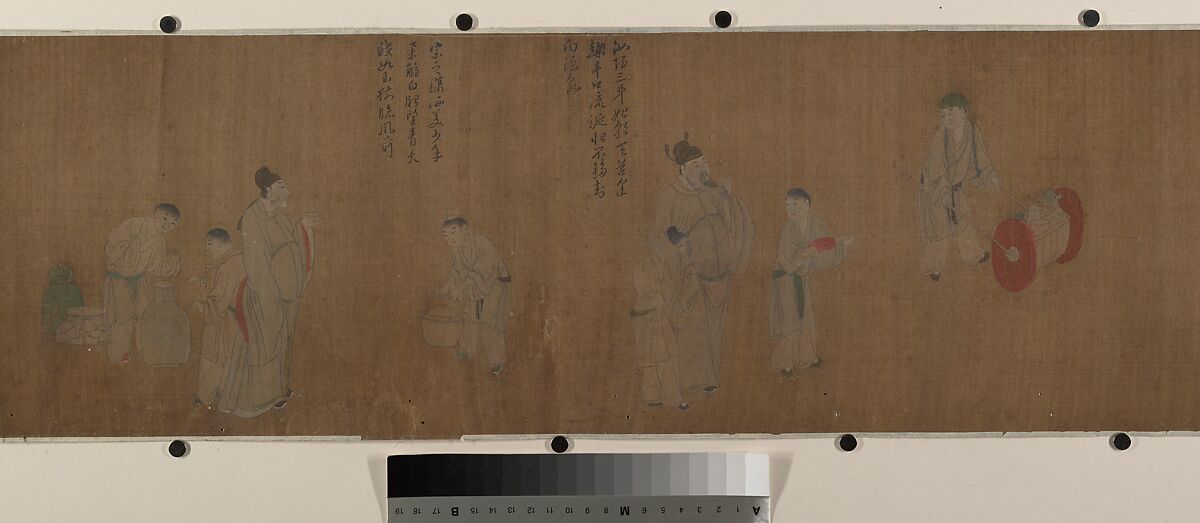 汝陽三斗始朝天道逢
麴車口流涎恨不移封
向酒泉
宗之瀟洒美少年
舉觴白眼望青天
皎如玉樹臨風前
A 1 2 3 4 5 6 M 8 9 10 11 12 13 14 15 B 17 18 19